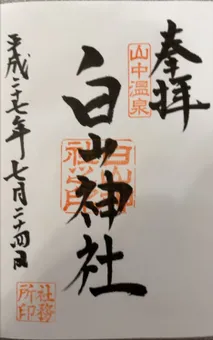 奉拝
山中温泉
白山神社
平成二十七年七月二十四日
社務
所印